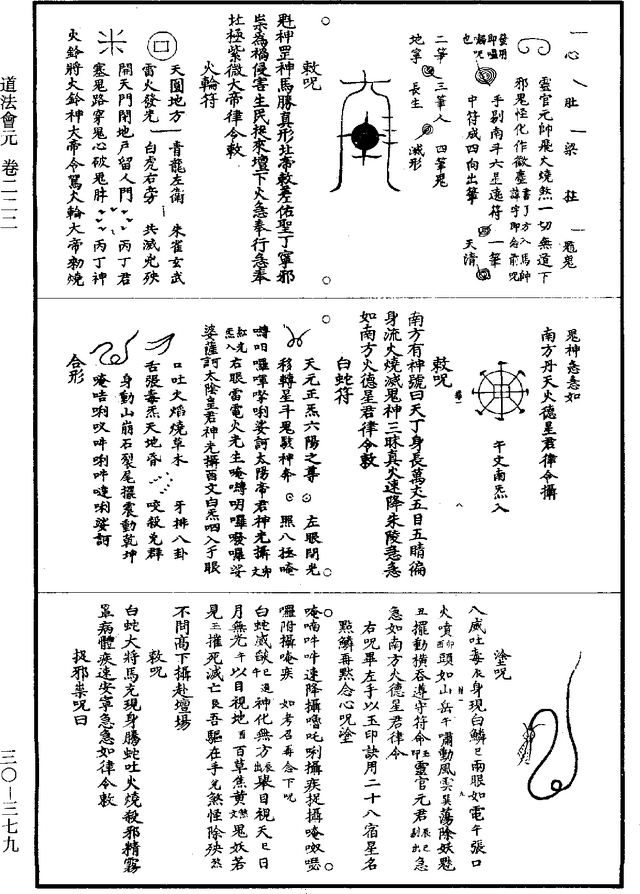 道法會元 卷二二二
一心 一肚 一梁 柱 一鬼
靈官元帥飛火燒煞一切無道下
邪鬼怪化作微塵
手剔南斗六星遶符 一筆
中符成四向出筆 天清
二筆 三筆人 四筆鬼
地寧 長生 滅形
敕呪
魁神罡神馬勝真形北帝敕差佐聖丁寧邪
祟為禍侵害生民捉來壇下火急奉行急奉
北極紫微大帝律令敕
火輪符
天圓地方 青龍左衛 朱雀玄武
雷火發光 白虎右旁 共滅兇殃
開天門閉地戶留人門 丙丁君
塞鬼路穿鬼心破鬼肚 丙丁神
火鈴將火鈴神大帝令罵火輪大帝勑燒
鬼神急急如
南方丹天火德星君律令攝
午文南炁入
敕呪
南方有神號曰天丁身長萬丈五目五睛徧
身流火燒滅鬼神三昧真火速降朱陵急急
如南方火德星君律令敕
白蛇符
天元正炁六陽之尊 左眼閉光
移轉星斗鬼哭神奔 照八極唵
太陽帝君神光攝
右眼雷電火光生唵
菩薩訶太陰皇君神光攝酉文白炁呬入于眼
口吐火焰燒草木 牙排八卦
舌張毒炁天地昏 咬殺兇群
身動山崩石裂尾擺震動乾坤
唵咭唎吽唎吽唎娑訶
合形
塗呪
八威吐毒身現白鱗兩眼如電張口
火噴頭如山岳嘯動風雲蕩除妖魅
擺動橫吞遵守符命靈官元君急
急如南方火德星君律令
右呪畢左手以玉印訣用二十八宿星名
點鱗再默念心呪塗
唵吽吽速降攝唎攝疾捉攝唵
囉附攝唵疾 如考召再念下呪
白蛇威神化無方舉目視天日
月無光以目視地百草焦黃鬼妖若
見摧死滅亡吾驅在手兇煞怪除殃
不問高下攝赴壇場
敕呪
白蛇大將馬充現身騰蛇吐火燒殺邪精霧
罩病體疾速安寧急急如律令敕
捉邪祟呪曰
三〇—三七九